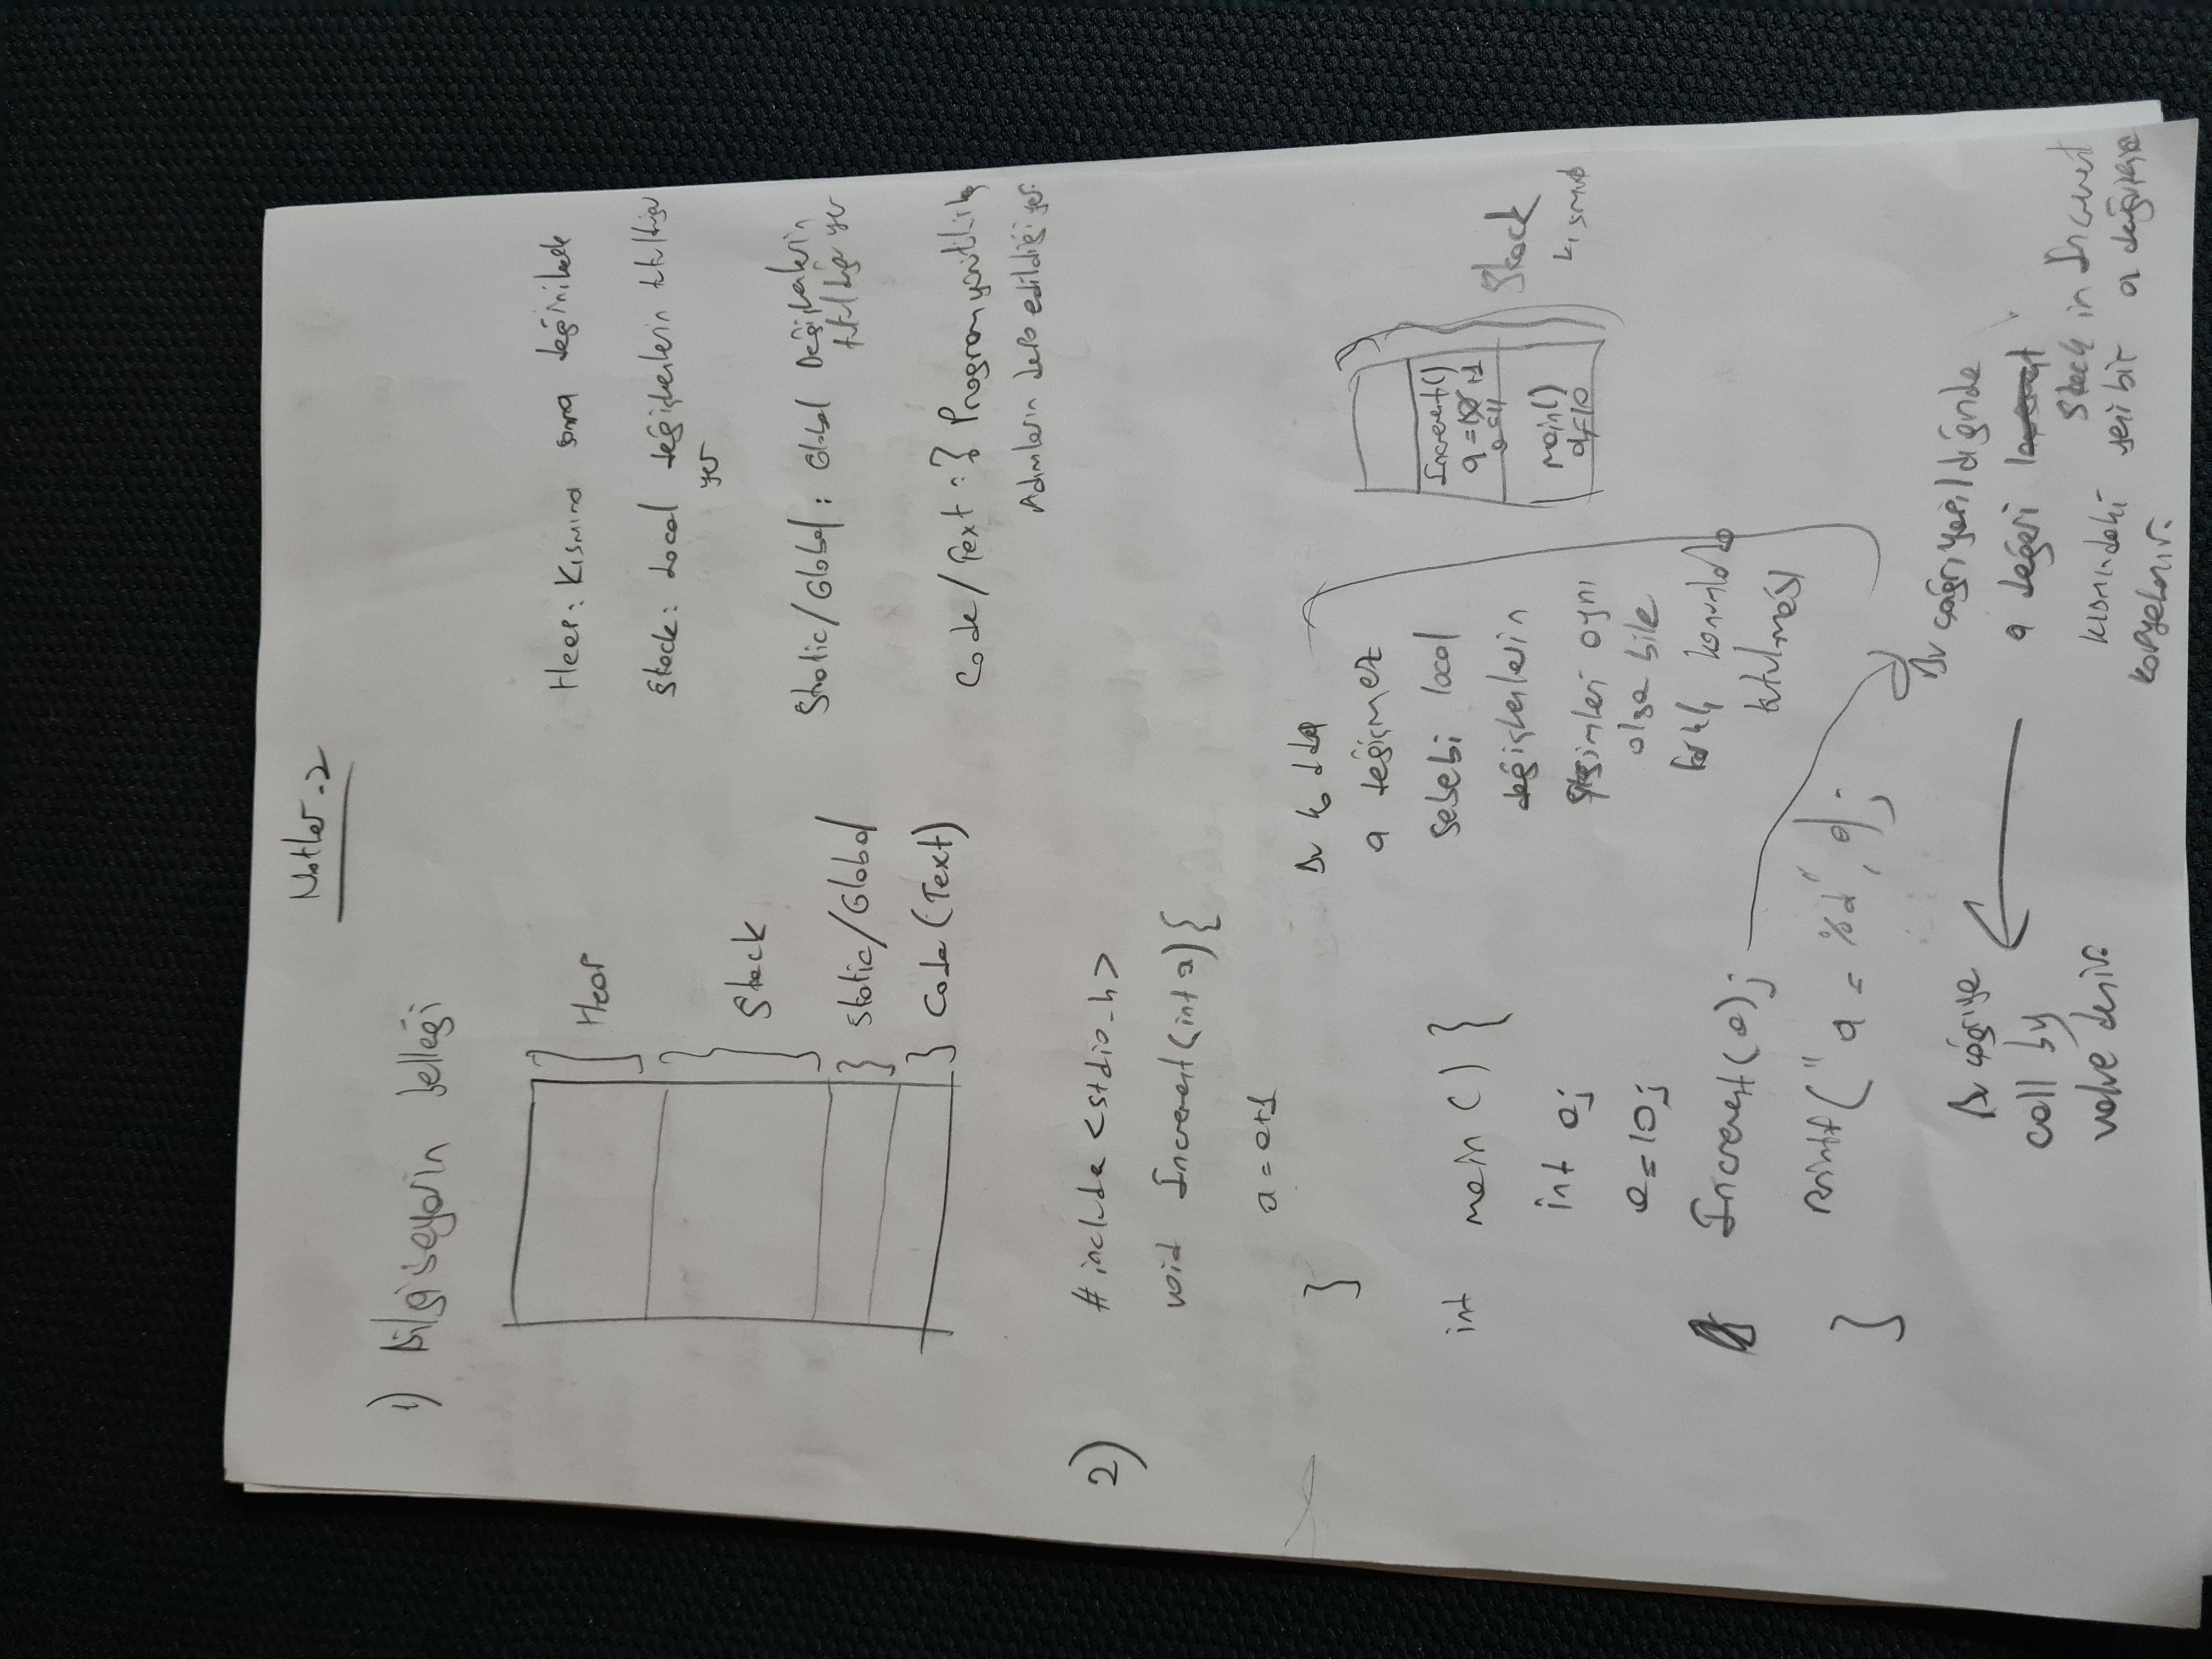 Notlar-2
1) Bilgisayarın belleği
Heap
Stack
Static/Global
Code (Text)
Heap: Kısmına sonra değinilecek
Stack: Local değişkenlerin tutulduğu
yer
Static/Global: Global Değişkenlerin
tutulduğu yer
Code/Text :? Program yürütülürken
Adımların depo edildiği yer.
2)
#include <stdio.h>
void Increment(int a){
a = a+1
}
int main() {
int a;
a=10;
Increment(a);
printf("a = %d", a);
}
Bu kodda
a değişmez
sebebi local
değişkenlerin
isimleri aynı
olsa bile
farklı konumlarda
tutulması
Increment()
a=10+1
a=11
main()
a=10
Stack
kısmı
Bu çağrı yapıldığında
a değeri
Stack in Increment
kısmındaki yeni bir a değişkenine
kopyalanır.
Bu çağrıya
call by
value denir.